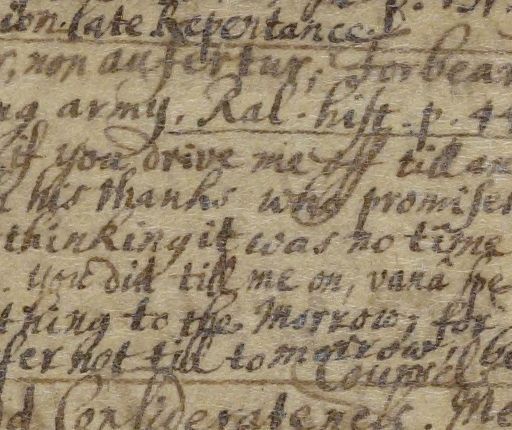 ion. late Repentance.
non aufertur, Forbear
ng army. Ral. hist. p. 44
if you drive me off till an
his thanks who promises
thinking it was no time
. you did till me on, vana spe
thing to the Morrow, for
fer not till to morrow, be
Counsel
d Considerateness. Me